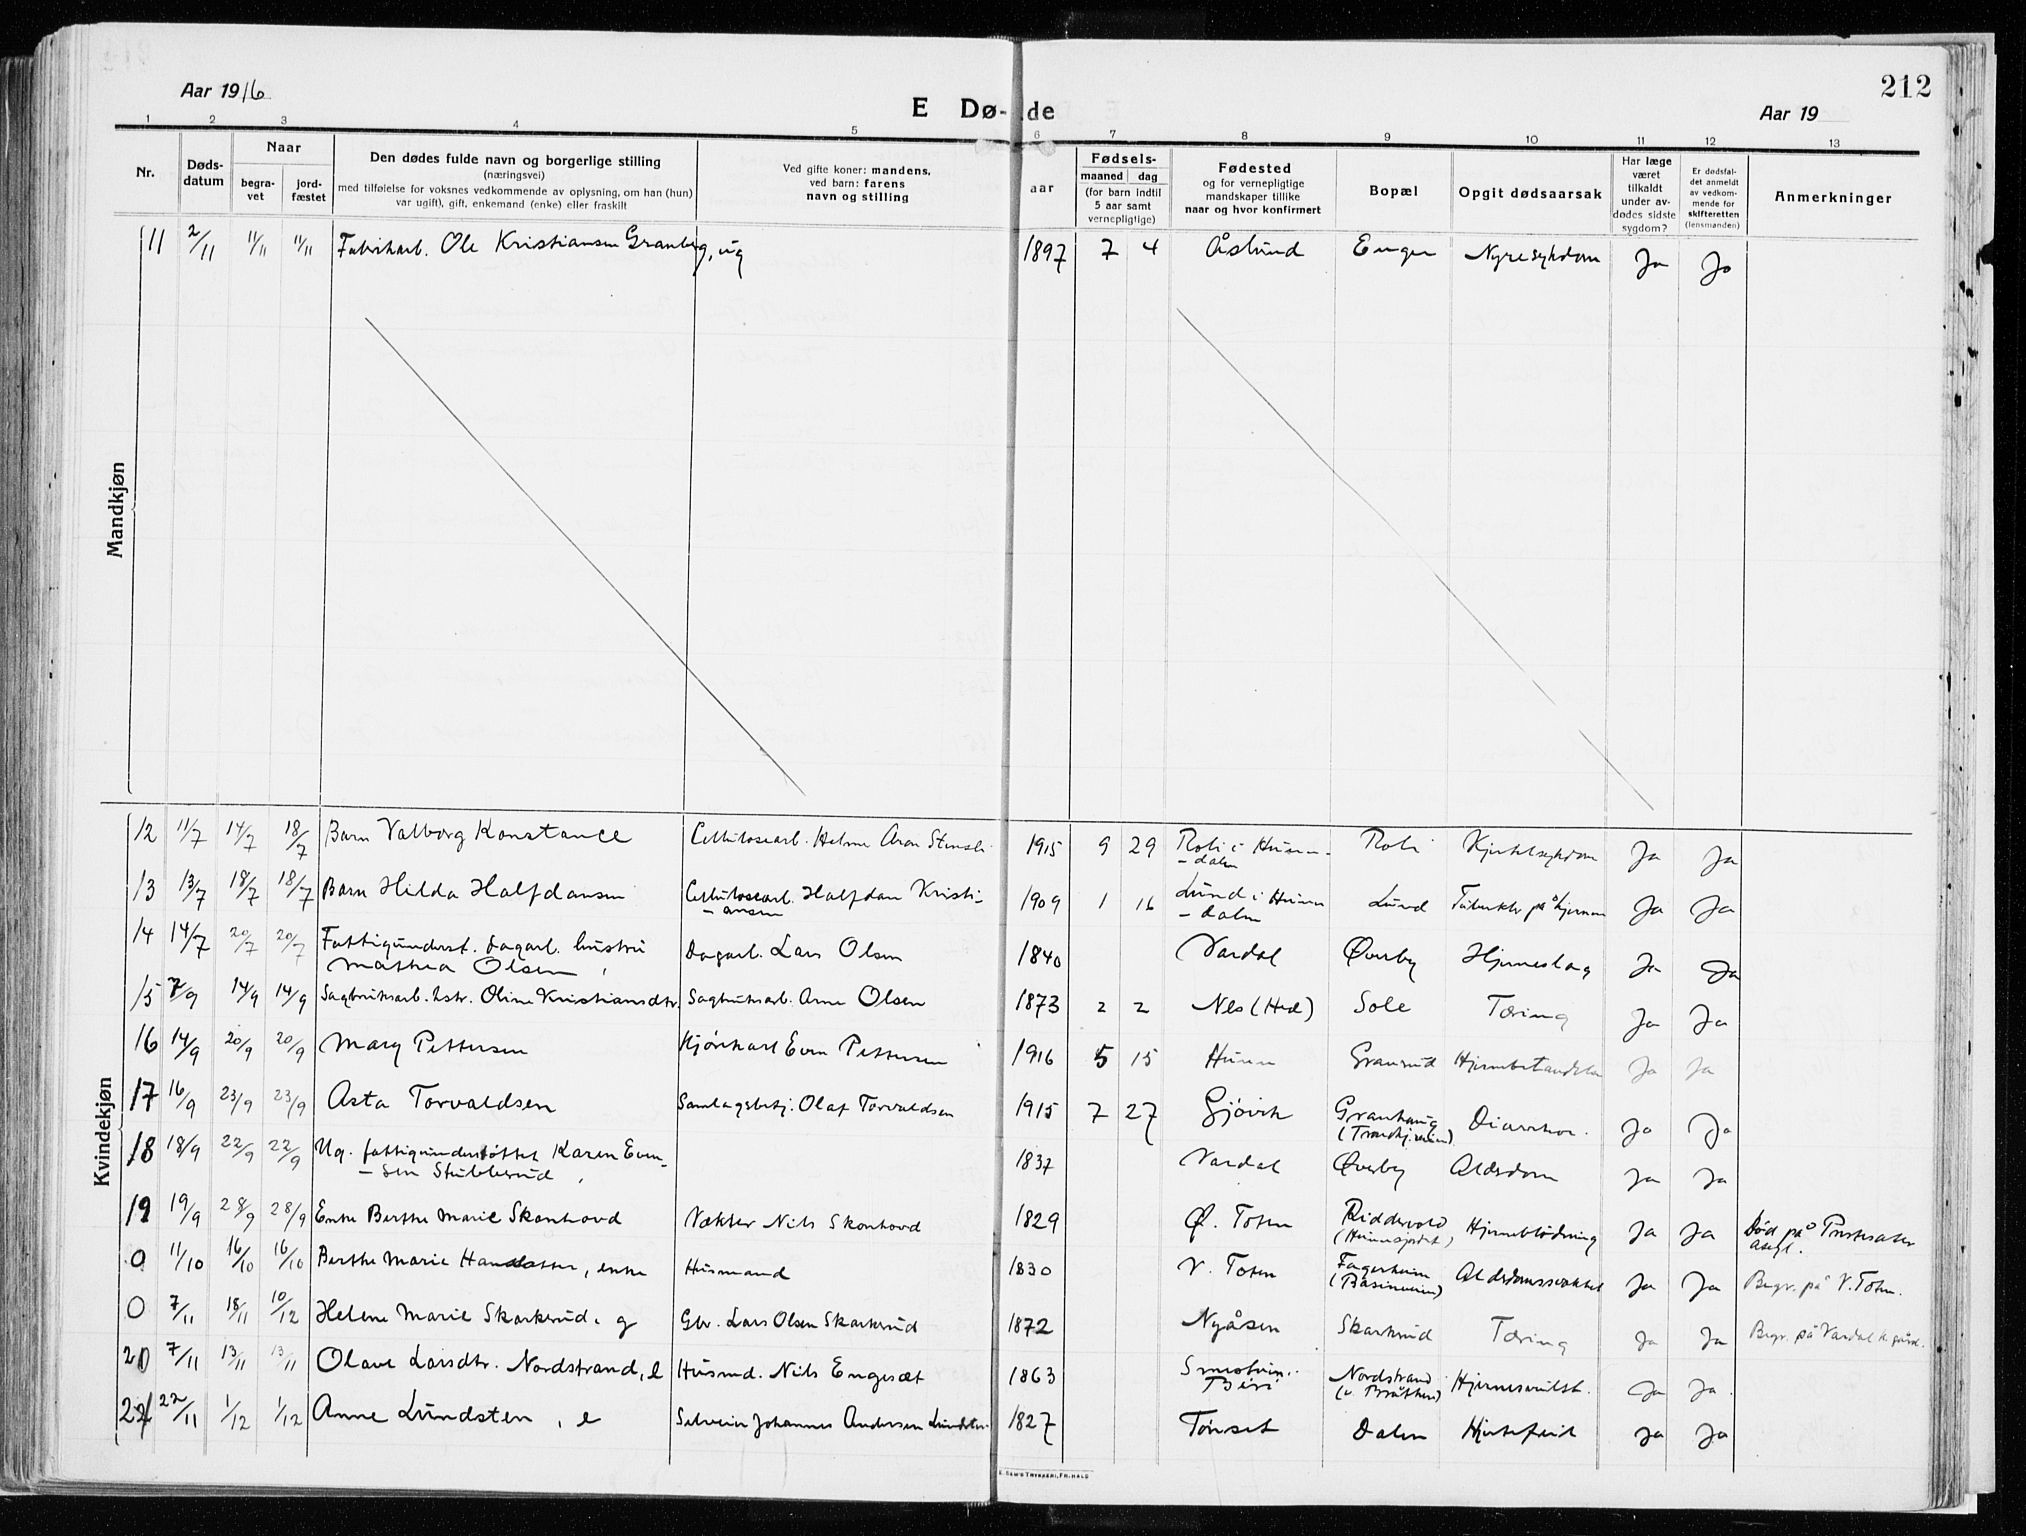 212
Aar 1916
E Dø- de
Aar 19
1 2 3 4 5 6 7 8 9 10 11 12 13
Nr.
Døds-
datum
Naar
begra-
vet
jord-
fæstet
Den dødes fulde navn og borgerlige stilling
(næringsvei)
med tilføielse for voksnes vedkommende av oplysning, om han (hun)
var ugift), gift, enkemand (enke) eller fraskilt
Ved gifte koner: mandens,
ved barn: farens
navn og stilling
aar
Fødsels-
maaned dag
(for barn indtil
5 aar samt
vernepligtige)
Fødested
og for vernepligtige
mandskaper tillike
naar og hvor konfirmert
Bopæl
Opgit dødsaarsak
Har læge
været
tilkaldt
under av-
dødes sidste
sygdom?
Er dødsfal-
det anmeldt
av vedkom-
mende for
skifteretten
(lensmanden)
Anmerkninger
Mandkjøn
11 2/11 11/11 11/11 Fabrikarb. Ole Kristiansen Granberg, ug 1897 7 4 Åslund Enger Nyresykdom Ja Ja
Kvindekjøn
12 11/7 14/7 18/7 Barn Valborg Konstance Cellulosearb. Helmer Aron Stensli 1915 9 29 Robi i Hunn- Robi Kjertelsykdom Ja Ja
-dalen
13 13/7 18/7 18/7 Barn Hilda Halfdansen Cellulosearb. Halfdan Kristi- 1909 1 16 Lund i Hunn Lund Tuberkler på hjernen Ja Ja
-ansen -dalen
14 14/7 20/7 20/7 Fattigunderst. dagarb. hustru Dagarb. Lars Olsen 1840 Vardal Øverby Hjerneslag Ja Ja
Mathea Olsen
15 7/9 14/9 14/9 Sagbruksarb. hstr. Oline Kristiansdtr. Sagbruksarb. Arne Olsen 1873 2 2 Nes (Hed) Sole Tæring Ja Ja
16 14/9 20/9 20/9 Mary Pettersen Kjørekarl Even Pettersen 1916 5 15 Hunn Granrud Hjernebetændelse Ja Ja
17 16/9 23/9 23/9 Asta Torvaldsen Samlagsbetj. Olaf Torvaldsen 1915 7 27 Gjøvik Granhaug Diarrhoe. Ja Ja
(Trondhj.veien)
18 18/9 22/9 22/9 Ug. fattigunderstøttet Karen Even- 1837 Vardal Øverby Aldersdom Ja Ja
-sen Stubberud
19 19/9 28/9 28/9 Enke Berthe Marie Skonhovd Vækter Nils Skonhovd 1829 Ø. Toten Riddervold Hjerneblødning Ja Ja Død på Prestesæter
(Hunnsjordet) asyl.
0 11/10 16/10 16/10 Berthe Marie, enke Husmand 1830 V. Toten Fagerheim Alderdomssvakhet Ja Ja Begr. på V. Toten.
(Basinveien)
0 7/11 18/11 10/12 Helene Marie Skarkerud. g Gbr. Lars Olsen Skarkerud 1872 Nyåsen Skarkrud Tæring Ja Ja Begr. på Vardal k.gård.
20 7/11 13/11 13/11 Olave Larsdtr. Nordstrand, e Husmd. Nils Engesæt 1863 Nordstrand Hjernesvulst. Ja Ja
Biri (v. Bråthen)
21 22/11 1/12 1/12 Anne Lundsten, e Selveier Johannes Andersen Lundsten 1827 Tønset Dalen Hjertefeil Ja Ja
TRYKKERI, FR.HALD